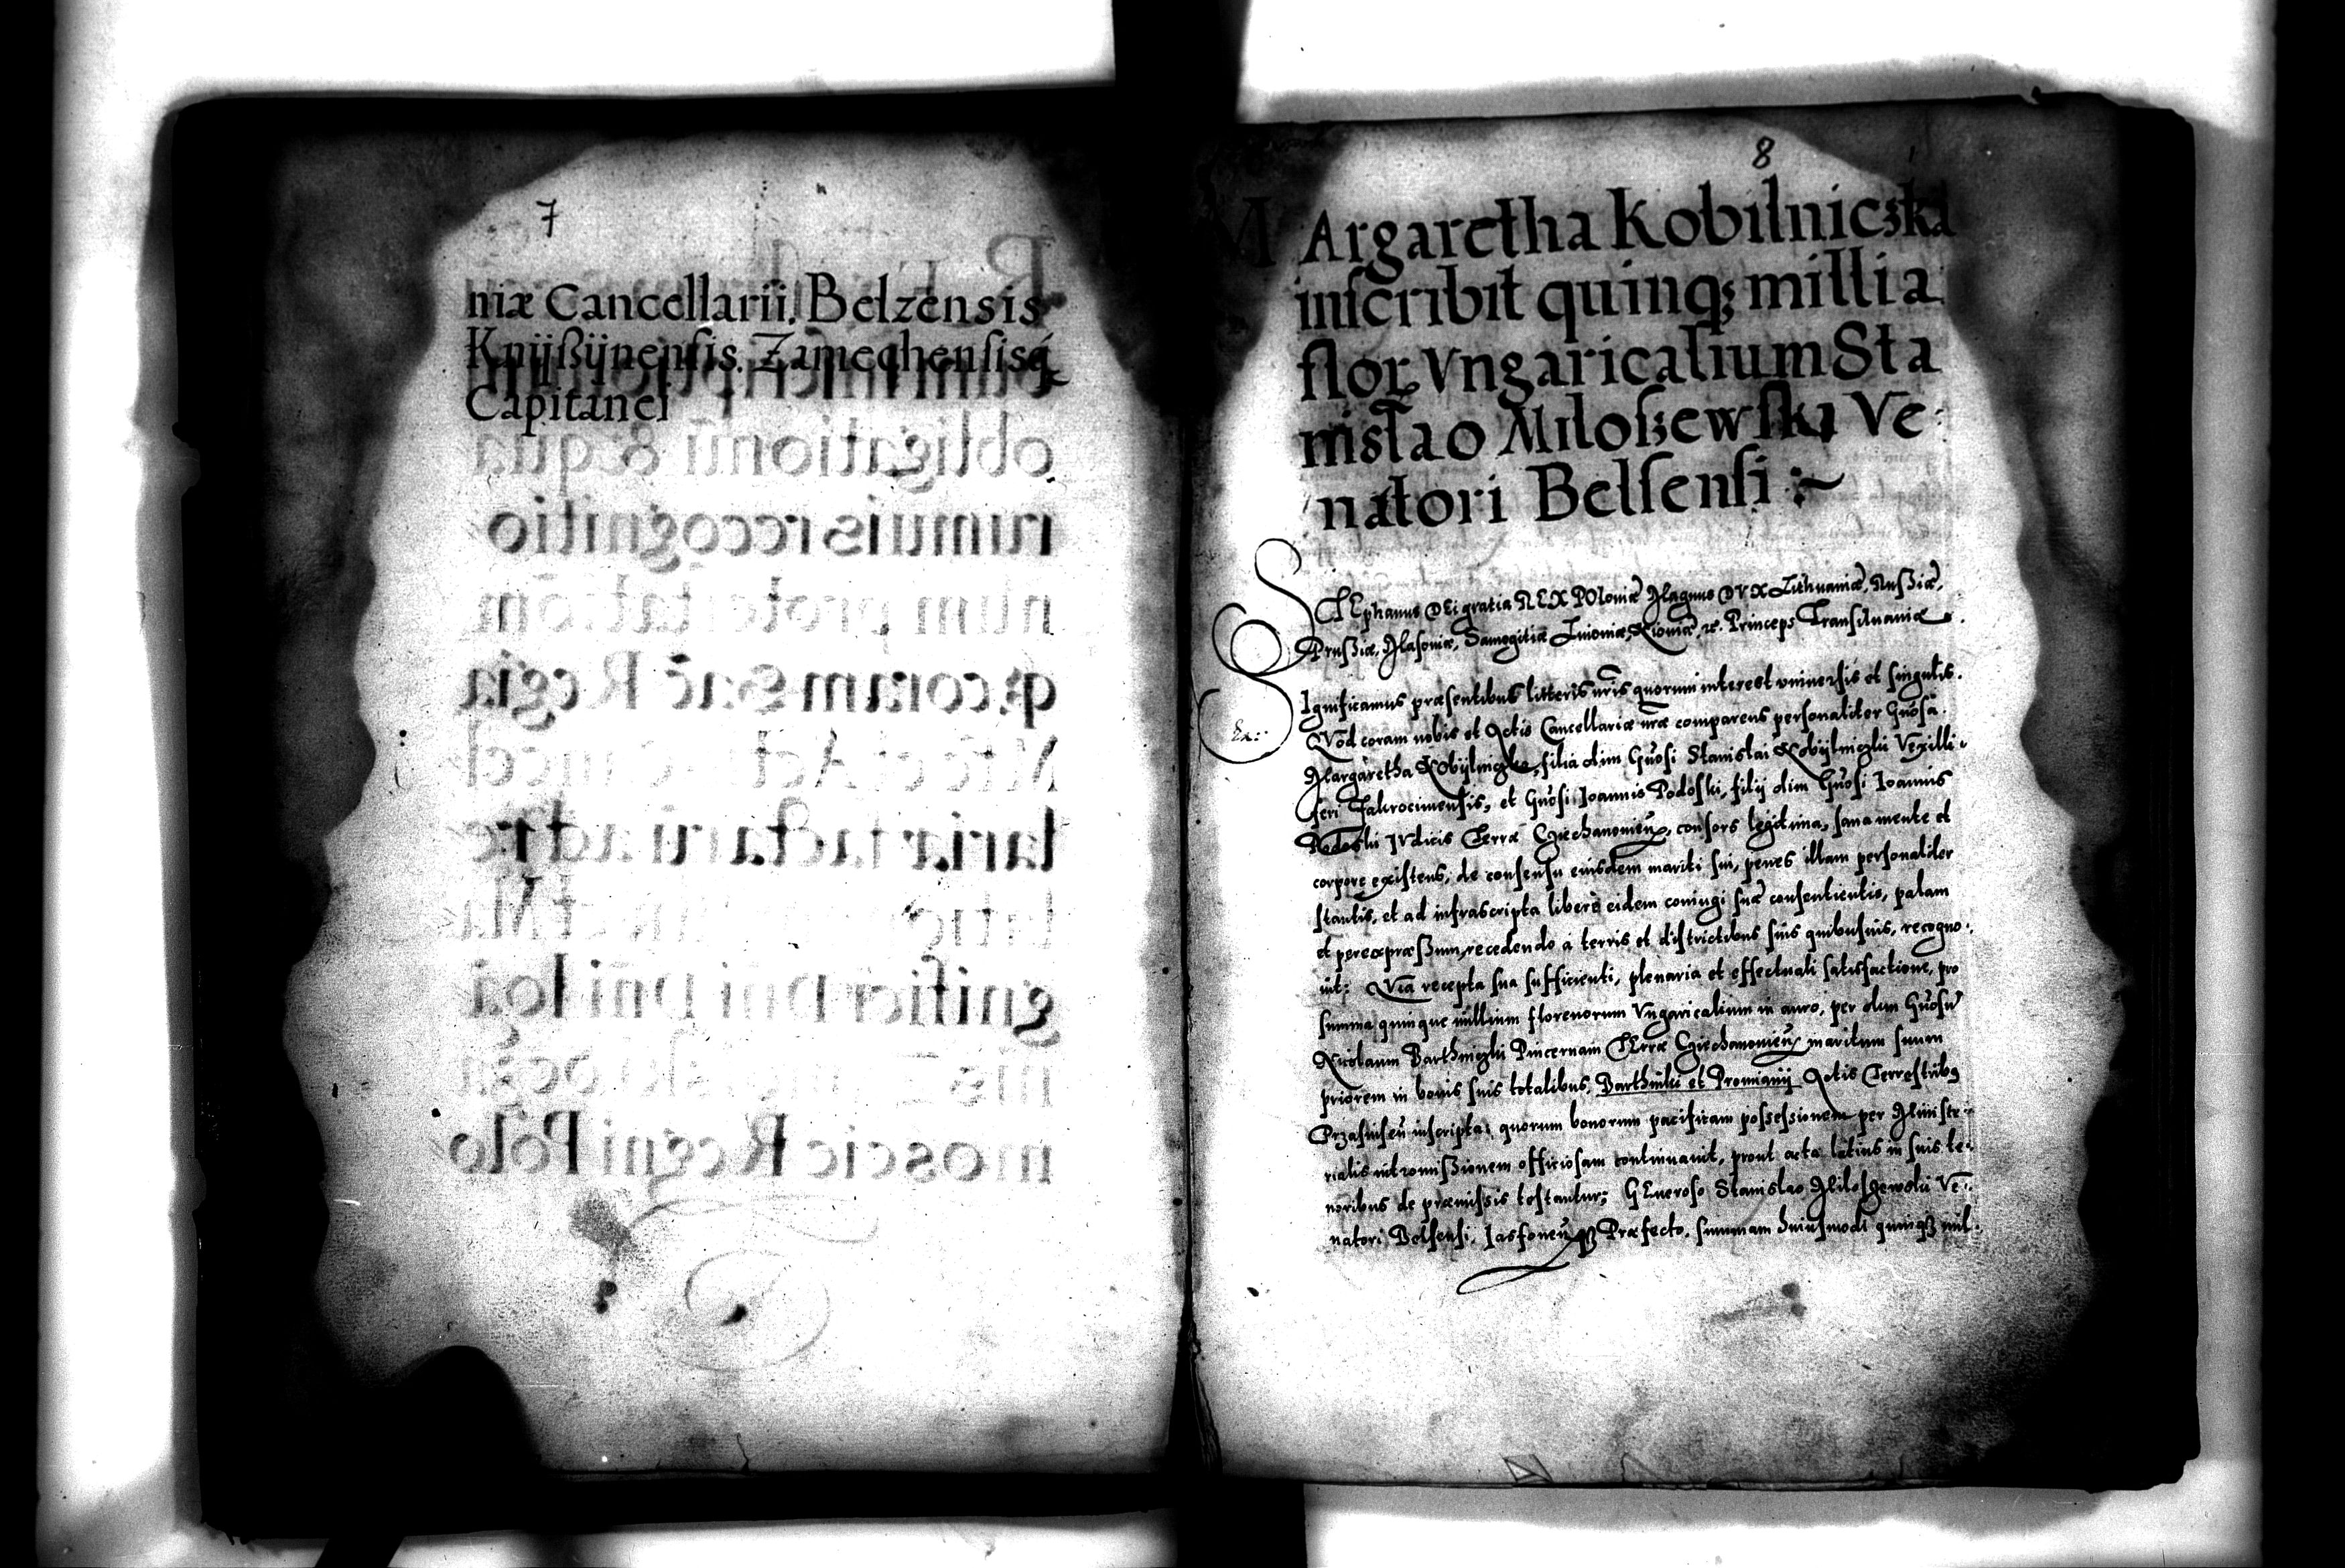 7
niæ Cancellarii, Belzensis
Knijßijnensis. Zamechensisq́
Capitanei
8
MArgaretha Kobilniczka
inscribit quinq; millia
flor. Vngaricalium Sta
nislao Miloszewski Ve
natori Belsensi :~
STEphanus DEi gratia REX POloniæ Magnus DVX Lithuaniæ, Rußiæ,
Prußiæ, Masoniæ, Samogitiæ Liuoniæ, Kioniæ, etc. Princeps Transiluaniæ.
SIgnificamus præsentibus litteris nr̃is quorum interest vniuersis et singulis.
QVod coram nobis et Actis Cancellariæ nr̃æ comparens personaliter Gñosa
Margaretha Kobÿlniczka, filia olim Gñosi Stanislai Kobÿlniczki Vexilli
feri Zakrocimensis, et Gñosi Ioannis Podoski, filij olim Gñosi Ioannis
Podoski IVdicis Terræ Cziechanonieñ, consors legitima, sana mente et
corpore existens, de consensu eiusdem mariti sui, penes illam personaliter
stantis, et ad infrascripta liberè eidem coniugi suæ consentientis, palam
et per expræßum, recedendo à terris et districtibus suis quibusuis, recogno:
uit: QVia recepta sua sufficienti, plenaria et effectuali satisfactione, pro
summa quinque millium florenorum Vngaricalium in auro, per olim Gñosũ
Nicolaum Barthniczki Pincernam TErræ Cziechanonieñ maritum suum
priorem in bonis suis totalibus, Barthniki et Promianÿ Actis Terrestribꝰ
Przasniseñ inscripta: quorum bonorum pacificam possessionem per Ministe:
rialis intromißionem officiosam continuauit, prout acta latius in suis te:
noribus de præmissis testantur; GEneroso Stanislao Miloszewski Ve:
natori Belsensi, Iasfoneñ Præfecto, summam huiusmodi quinqȝ mil: